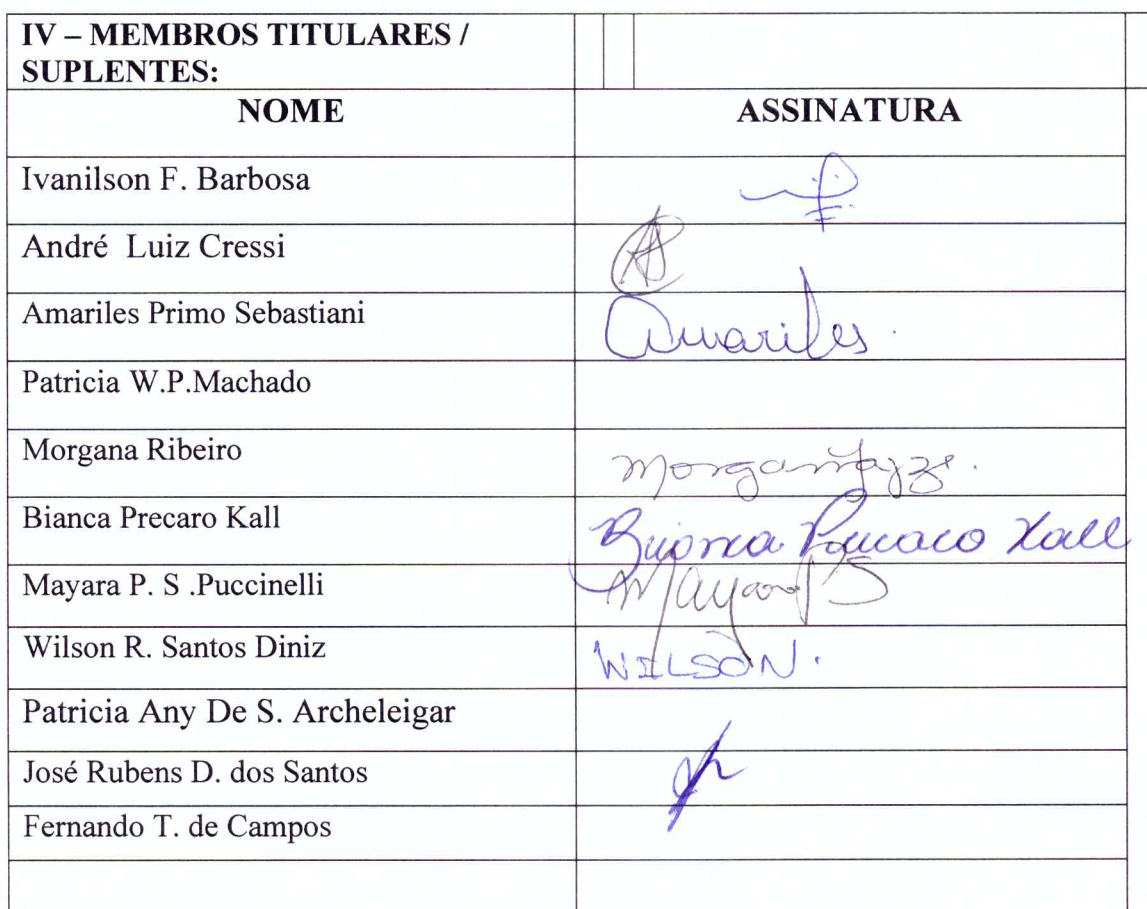 IV – MEMBROS TITULARES /
SUPLENTES:
NOME ASSINATURA
Ivanilson F. Barbosa
André Luiz Cressi
Amariles Primo Sebastiani Amariles.
Patricia W.P.Machado
Morgana Ribeiro
Bianca Precaro Kall Bianca Kall
Mayara P. S .Puccinelli Mayara PS
Wilson R. Santos Diniz WILSON.
Patricia Any De S. Archeleigar
José Rubens D. dos Santos
Fernando T. de Campos